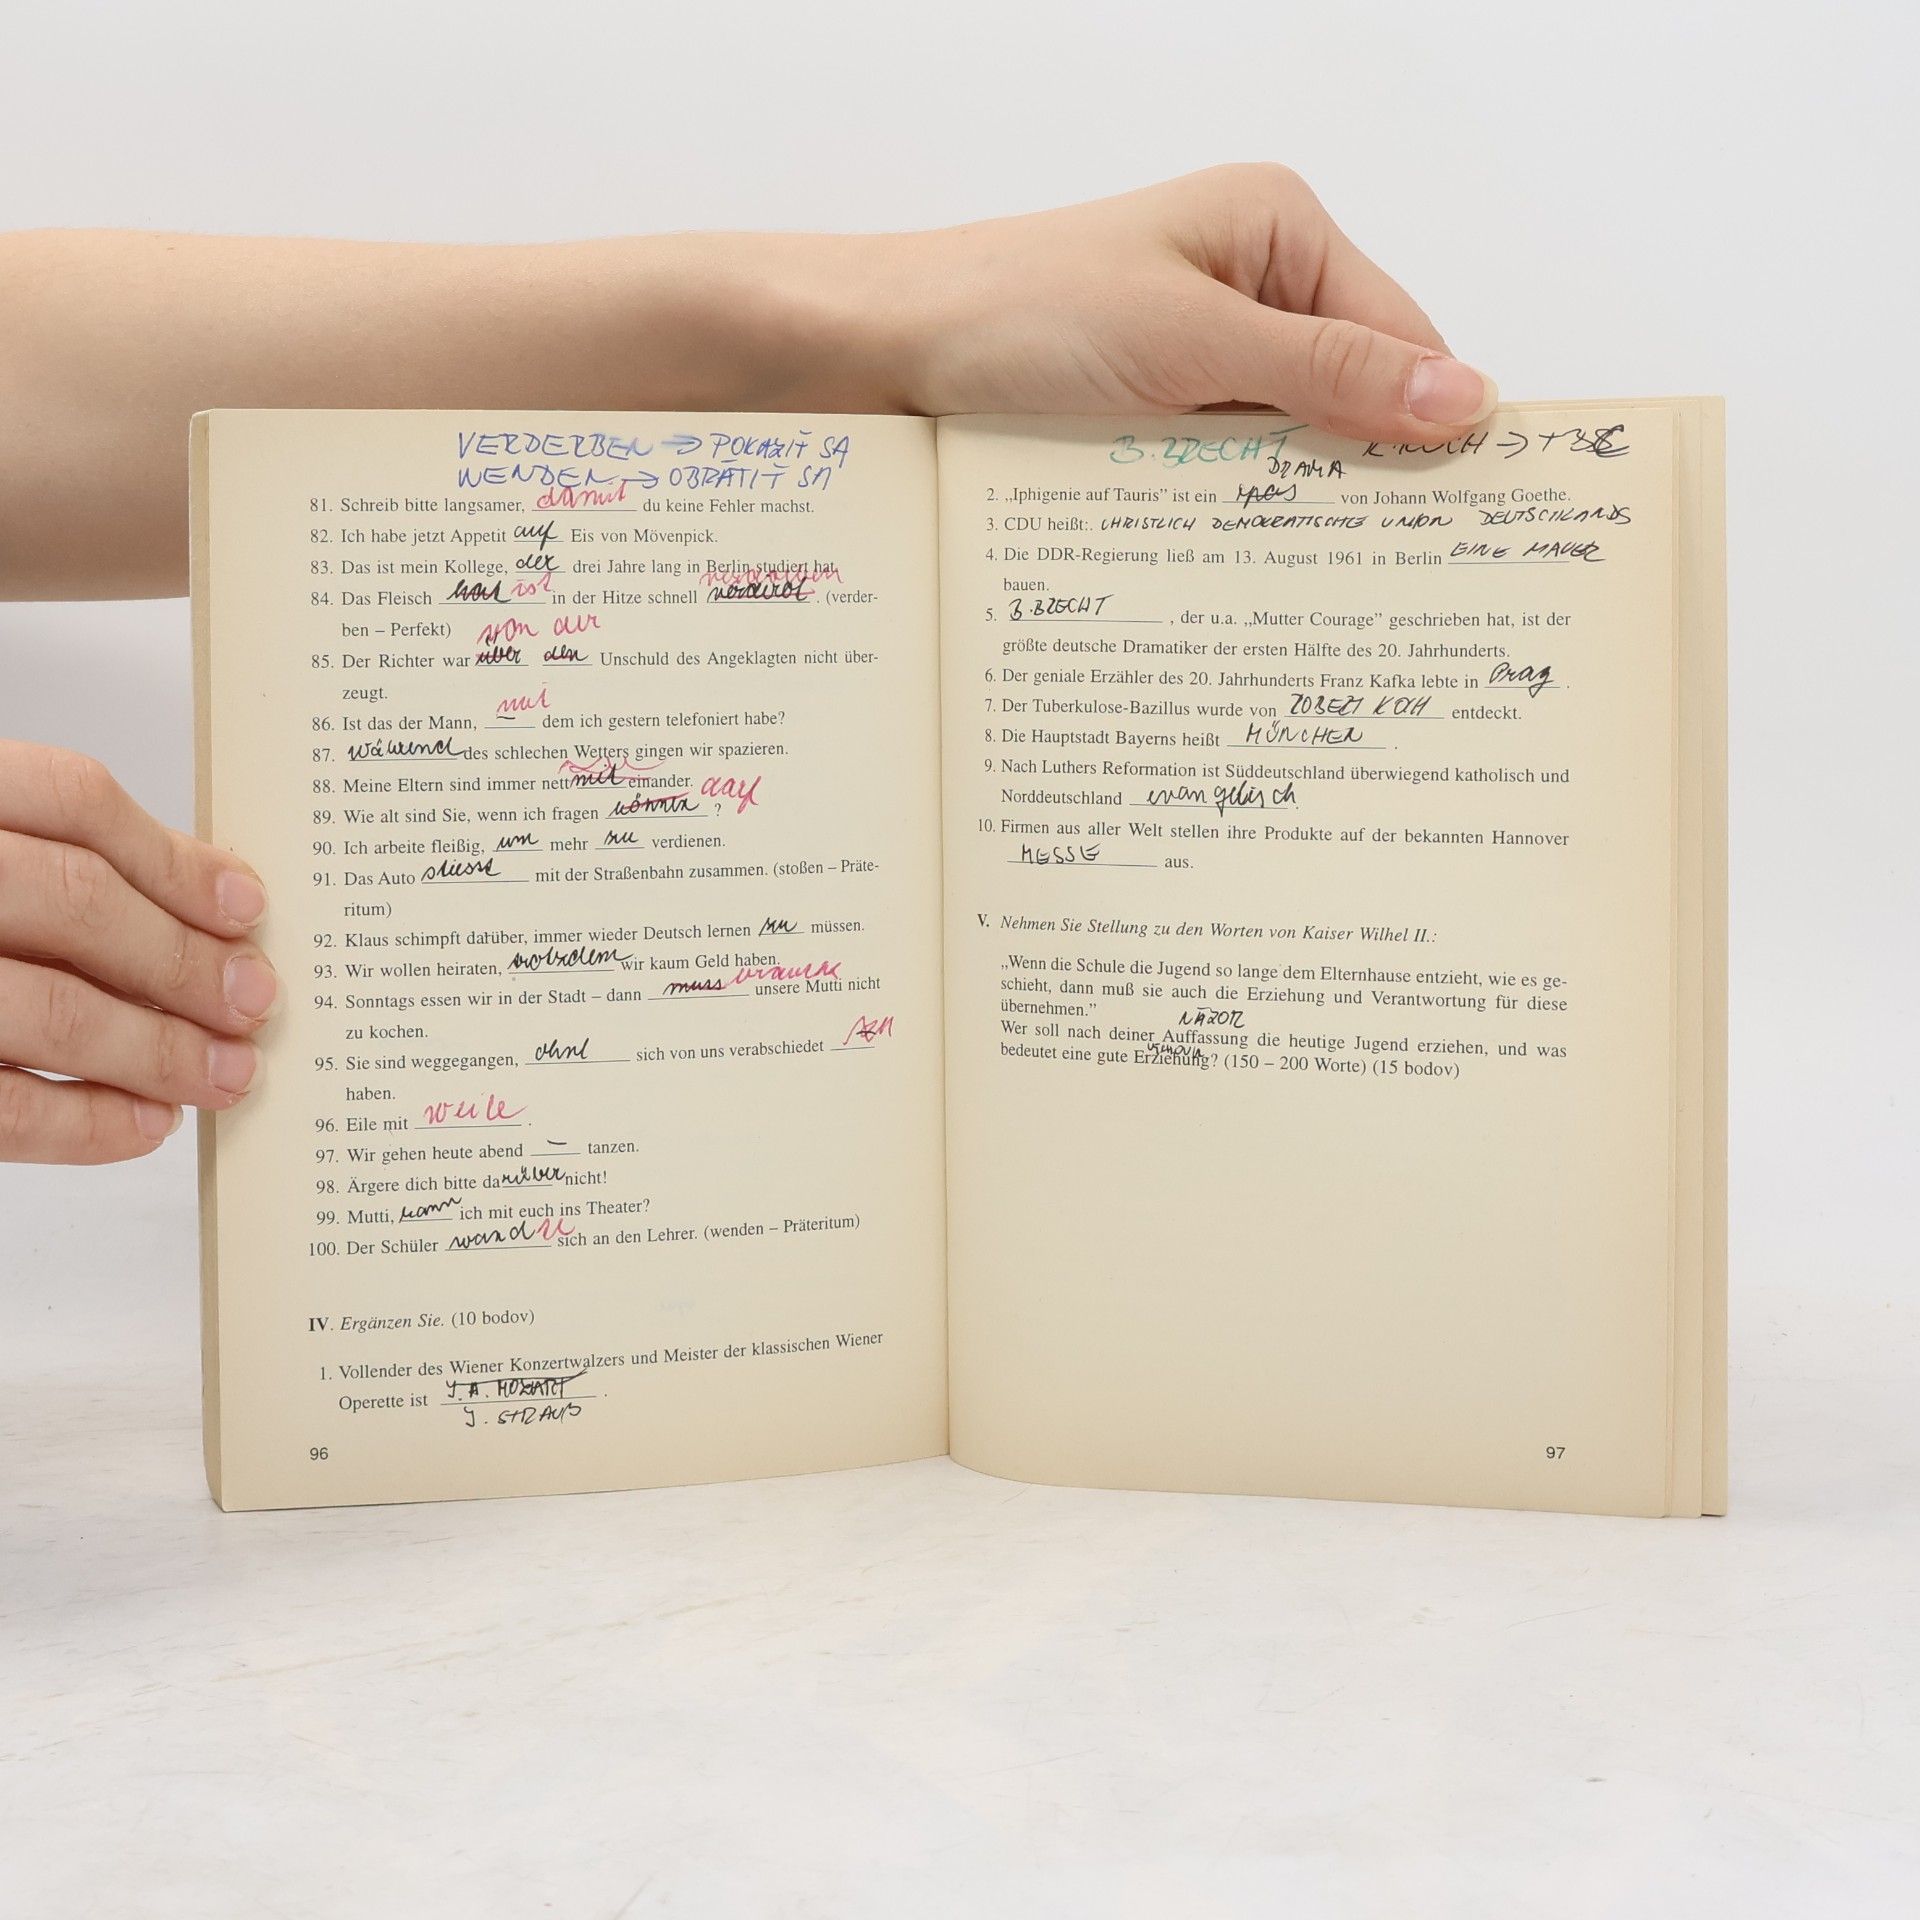 VERDERBEN → POKAZIŤ SA
WENDEN → OBRÁTIŤ SA
81. Schreib bitte langsamer, damit du keine Fehler machst.
82. Ich habe jetzt Appetit auf Eis von Mövenpick.
83. Das ist mein Kollege, der drei Jahre lang in Berlin studiert hat.
verdorben
84. Das Fleisch hat ist in der Hitze schnell . (verder-
ben – Perfekt) von der
85. Der Richter war über den Unschuld des Angeklagten nicht über-
zeugt.
mit
86. Ist das der Mann, dem ich gestern telefoniert habe?
87. während des schlechen Wetters gingen wir spazieren.
88. Meine Eltern sind immer nett mit einander.
89. Wie alt sind Sie, wenn ich fragen können ? darf
90. Ich arbeite fleißig, um mehr zu verdienen.
91. Das Auto stiesse mit der Straßenbahn zusammen. (stoßen – Präte-
ritum)
92. Klaus schimpft darüber, immer wieder Deutsch lernen zu müssen.
93. Wir wollen heiraten, trotzdem wir kaum Geld haben.
94. Sonntags essen wir in der Stadt – dann muss braucht unsere Mutti nicht
zu kochen.
95. Sie sind weggegangen, ohne sich von uns verabschiedet zu
haben.
96. Eile mit weile .
97. Wir gehen heute abend – tanzen.
98. Ärgere dich bitte darüber nicht!
99. Mutti, kann ich mit euch ins Theater?
100. Der Schüler wandte sich an den Lehrer. (wenden – Präteritum)
IV. Ergänzen Sie. (10 bodov)
1. Vollender des Wiener Konzertwalzers und Meister der klassischen Wiener
Operette ist J. A. MOZART .
J. STRAUß
96
B. BRECHT KOCH → TBC
DRAMA
2. „Iphigenie auf Tauris” ist ein von Johann Wolfgang Goethe.
3. CDU heißt:. CHRISTLICH DEMOKRATISCHE UNION DEUTSCHLANDS
4. Die DDR-Regierung ließ am 13. August 1961 in Berlin EINE MAUER
bauen.
5. B. BRECHT , der u.a. „Mutter Courage” geschrieben hat, ist der
größte deutsche Dramatiker der ersten Hälfte des 20. Jahrhunderts.
6. Der geniale Erzähler des 20. Jahrhunderts Franz Kafka lebte in Prag .
7. Der Tuberkulose-Bazillus wurde von ROBERT KOCH entdeckt.
8. Die Hauptstadt Bayerns heißt MÜNCHEN .
9. Nach Luthers Reformation ist Süddeutschland überwiegend katholisch und
Norddeutschland evangelisch.
10. Firmen aus aller Welt stellen ihre Produkte auf der bekannten Hannover
MESSE aus.
V. Nehmen Sie Stellung zu den Worten von Kaiser Wilhel II.:
„Wenn die Schule die Jugend so lange dem Elternhause entzieht, wie es ge-
schieht, dann muß sie auch die Erziehung und Verantwortung für diese
übernehmen.”
NÁZOR
Wer soll nach deiner Auffassung die heutige Jugend erziehen, und was
VÝCHOVA
bedeutet eine gute Erziehung? (150 – 200 Worte) (15 bodov)
97